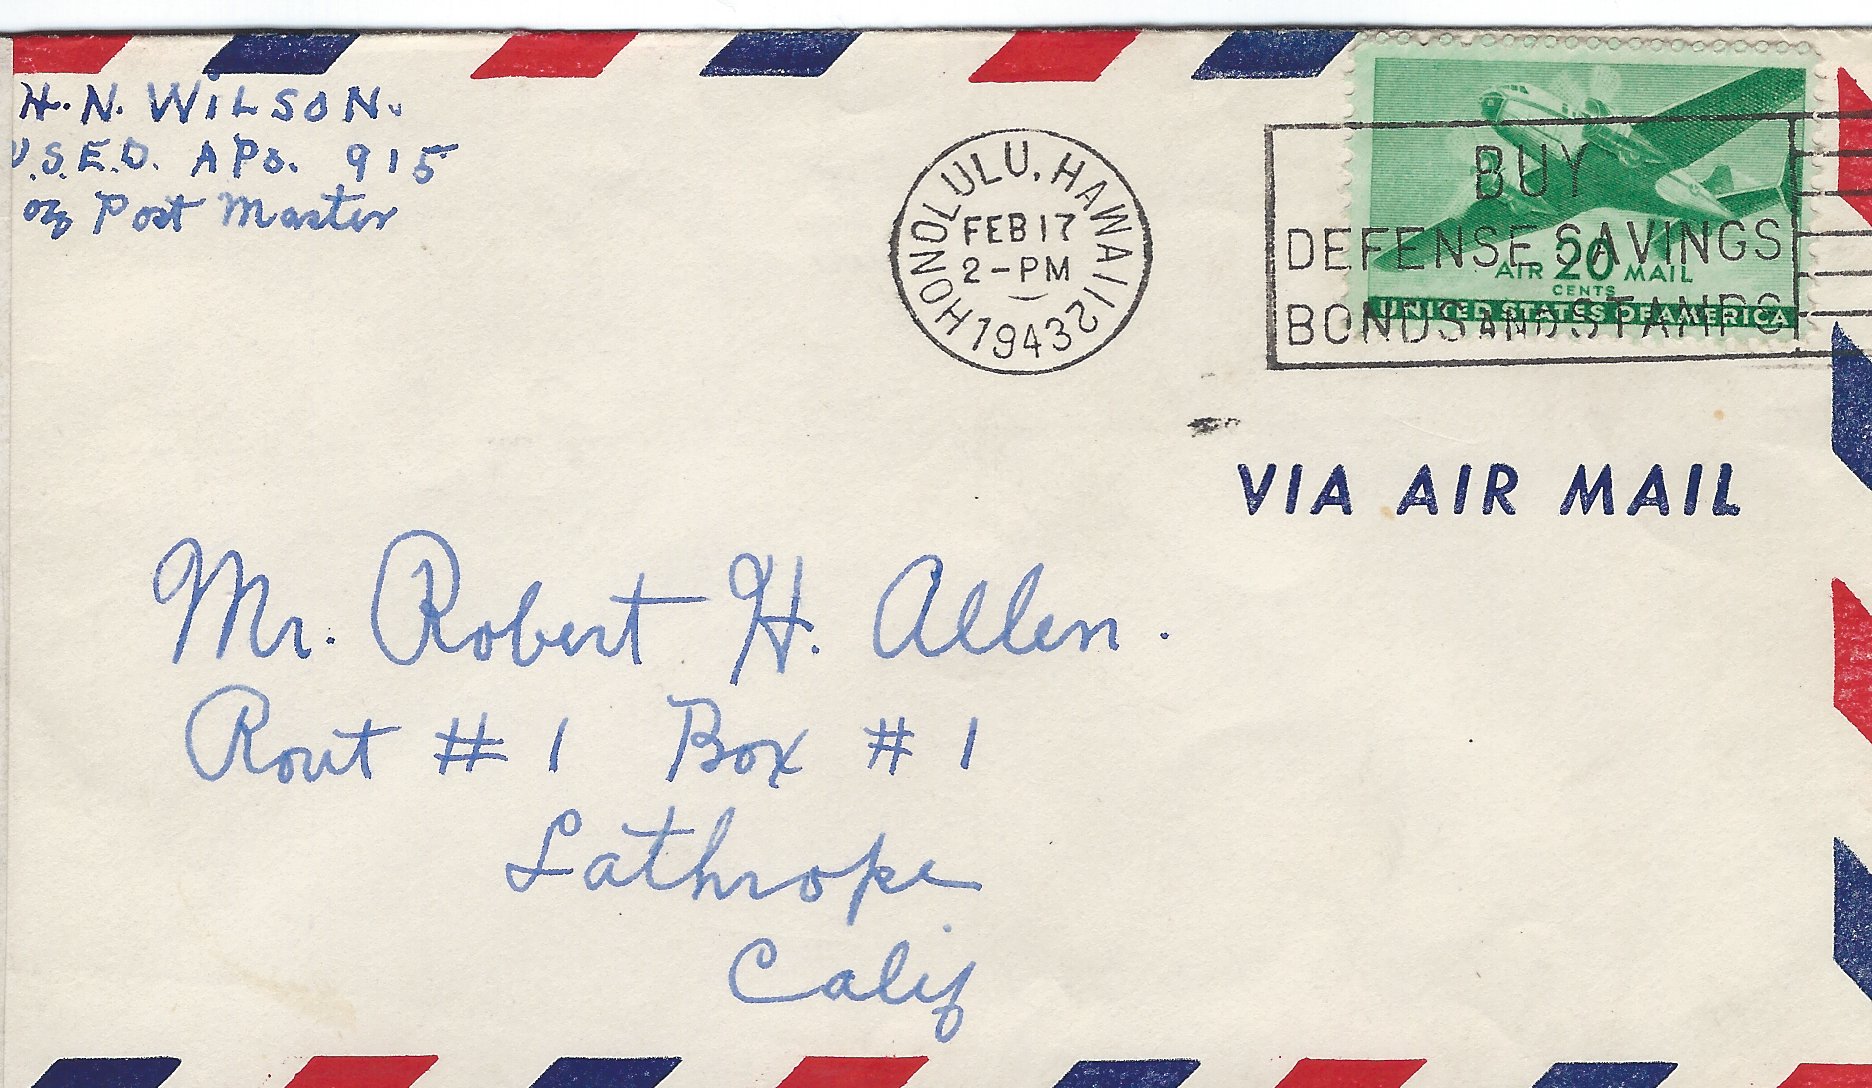 H. N. WILSON.
U.S.E.D. APO. 915
c/o Post Master
HONOLULU, HAWAII 2
FEB 17
2-PM
1943
BUY
DEFENSE SAVINGS
BONDS AND STAMPS
AIR 20 MAIL
CENTS
UNITED STATES OF AMERICA
VIA AIR MAIL
Mr. Robert H. Allen.
Rout # 1 Box # 1
Lathrope
Calif